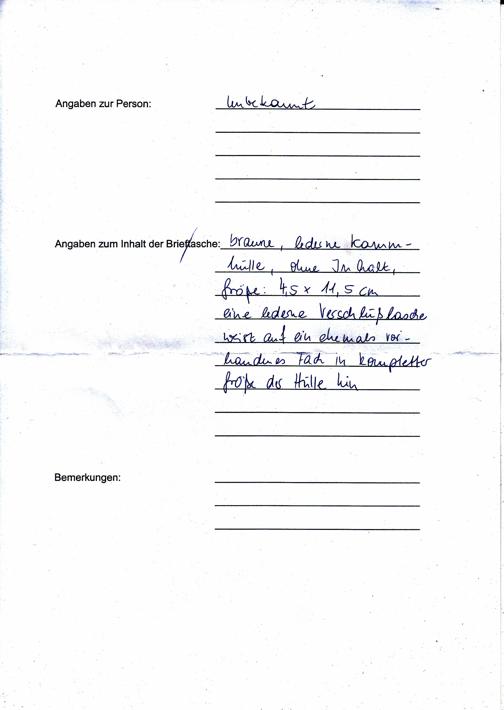 Angaben zur Person: Unbekannt
Angaben zum Inhalt der Brieftasche: braune, lederne Kamm-
hülle, ohne Inhalt,
Größe: 4,5 x 11,5 cm
eine lederne Verschlußlasche
weist auf ein ehemals vor-
handenes Fach in kompletter
Größe der Hülle hin
Bemerkungen: